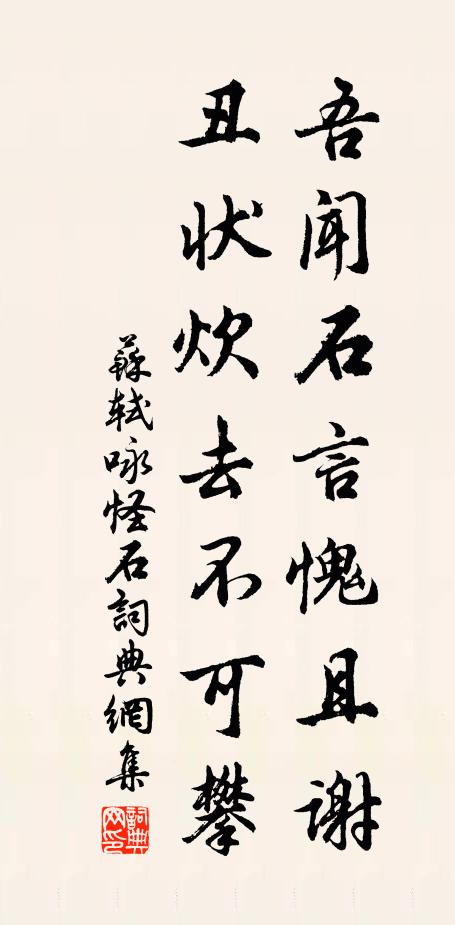 吾闻石言愧且谢
丑状炊去不可攀
蘇軾咏怪石詞典網集
詞典网印